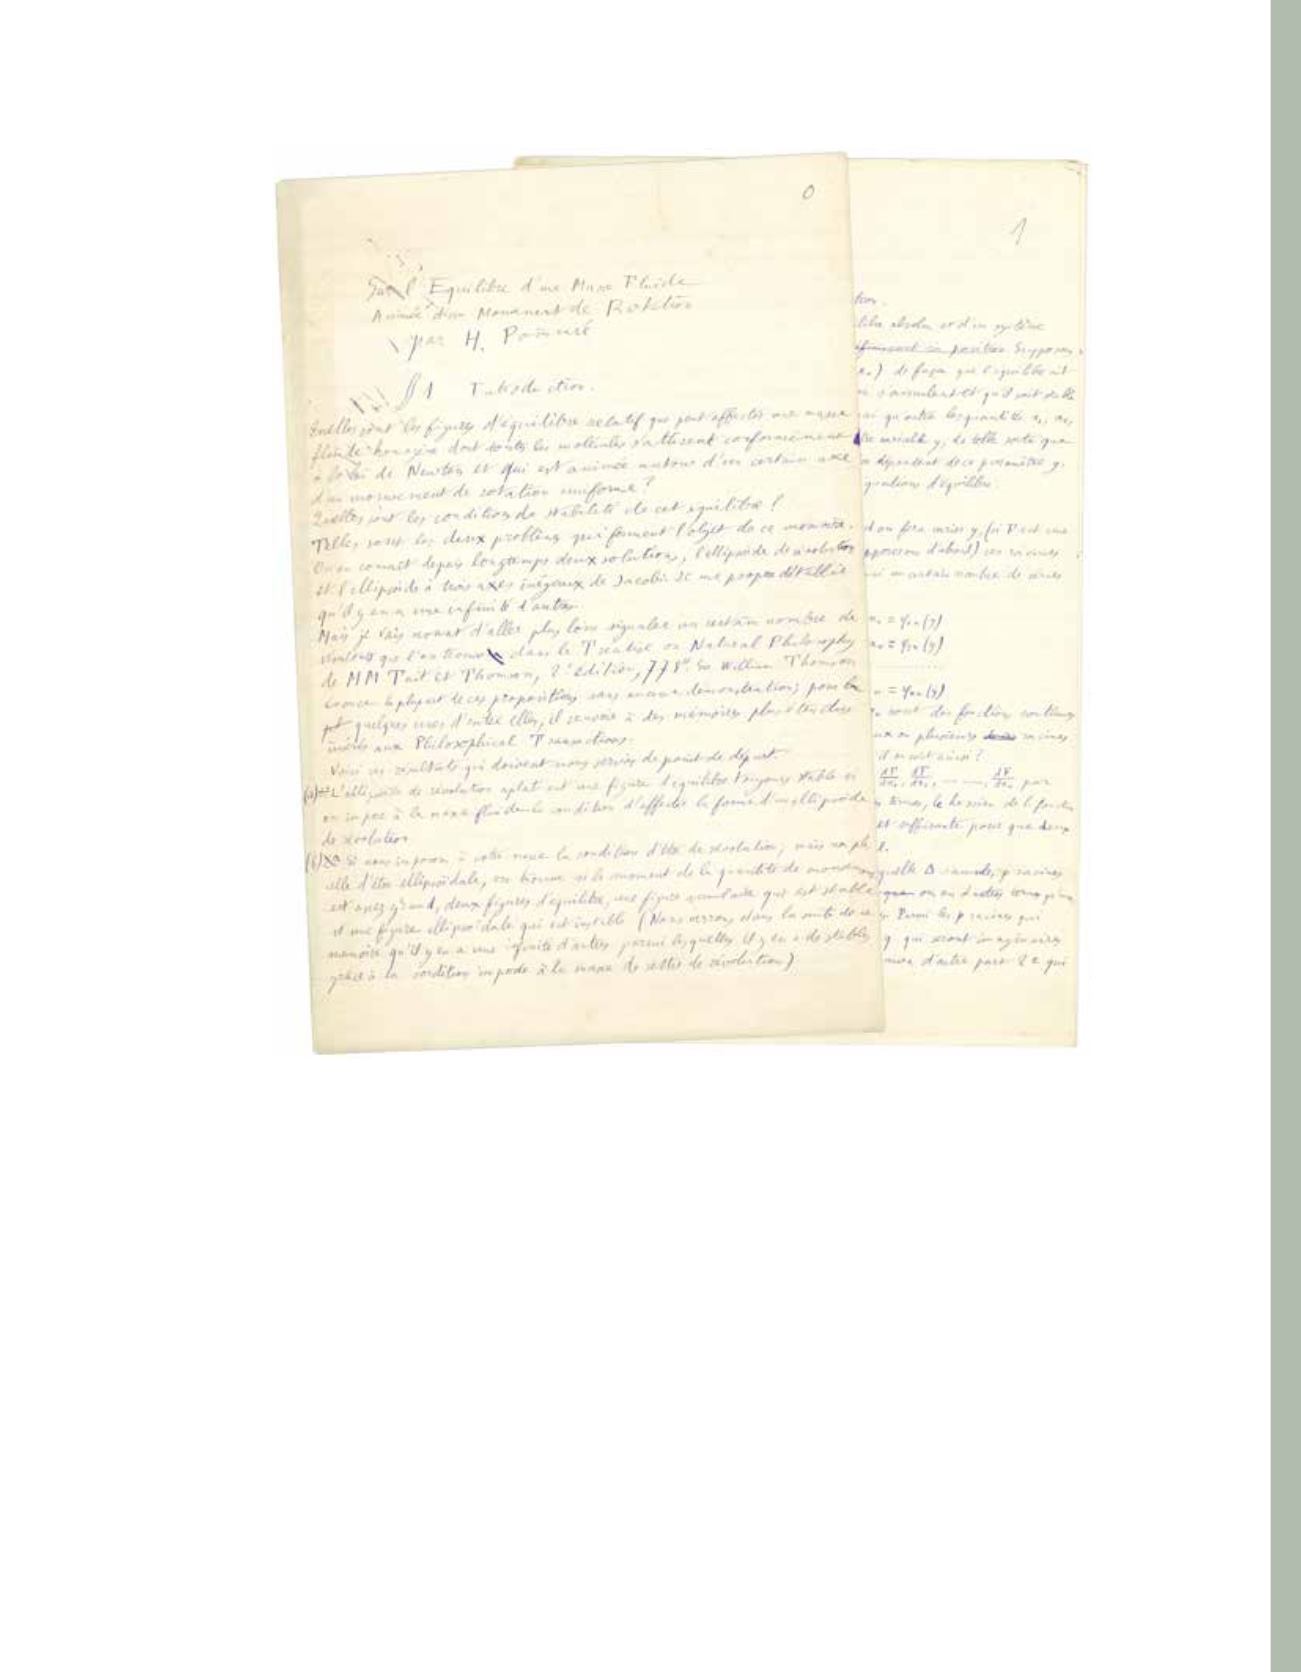 0
Sur l'Equilibre d'une Masse Fluide
Animée d'un Mouvement de Rotation
par H. Poincaré
§ 1 Introduction.
Quelles sont les figures d'équilibre relatif que peut affecter une masse
fluide homogène dont toutes les molécules s'attirent conformément
à la loi de Newton et qui est animée autour d'un certain axe
d'un mouvement de rotation uniforme?
Quelles sont les conditions de stabilité de cet équilibre?
Telles sont les deux problèmes qui forment l'objet de ce mémoire.
On en connait depuis longtemps deux solutions, l'ellipsoïde de révolution
et l'ellipsoïde à trois axes inégaux de Jacobi. Je me propose d'établir
qu'il y en a une infinité d'autres.
Mais je vais avant d'aller plus loin signaler un certain nombre de
résultats que l'on trouve dans le Treatise on Natural Philosophy
de MM Tait et Thomson, 2e édition, 778". Sir William Thomson
énonce la plupart de ces propositions sans aucune démonstration; pour la
quelques unes d'entre elles, il renvoie à des mémoires plus étendus
insérés aux Philosophical Transactions.
Voici ces résultats qui doivent nous servir de point de départ.
(a) L'ellipsoïde de révolution aplati est une figure d'équilibre toujours stable si
on impose à la masse fluide la condition d'affecter la forme d'un ellipsoïde
de révolution.
(b) Si nous imposons à notre masse la condition d'être de révolution, mais non plus
celle d'être ellipsoïdale, on trouve si le moment de la quantité de mouvement
est assez grand, deux figures d'équilibre, une figure annulaire qui est stable
et une figure ellipsoïdale qui est instable (Nous verrons dans la suite de ce
mémoire qu'il y en a une infinité d'autres parmi lesquelles il y en a de stables
grâce à la condition imposée à la masse de rester de révolution)
1
libre absolu et d'un système
position Supposons
de façon que l'équilibre ait
s'annulent et qu'il soit stable
qu'outre les quantités x₁, x₂,
variable y, de telle sorte que
dépendent de ce paramètre y.
équations d'équilibre.
d'abord) ces racines
un certain nombre de séries
= φ (y)
= φ (y)
= φ (y)
sont des fonctions continues
ou plusieurs racines
il en soit ainsi?
par
termes, le hessien de la fonction
et suffisante pour que deux
Δ s'annule, p racines
Parmi les p racines qui
y qui seront imaginaires
d'autre part 2 q qui